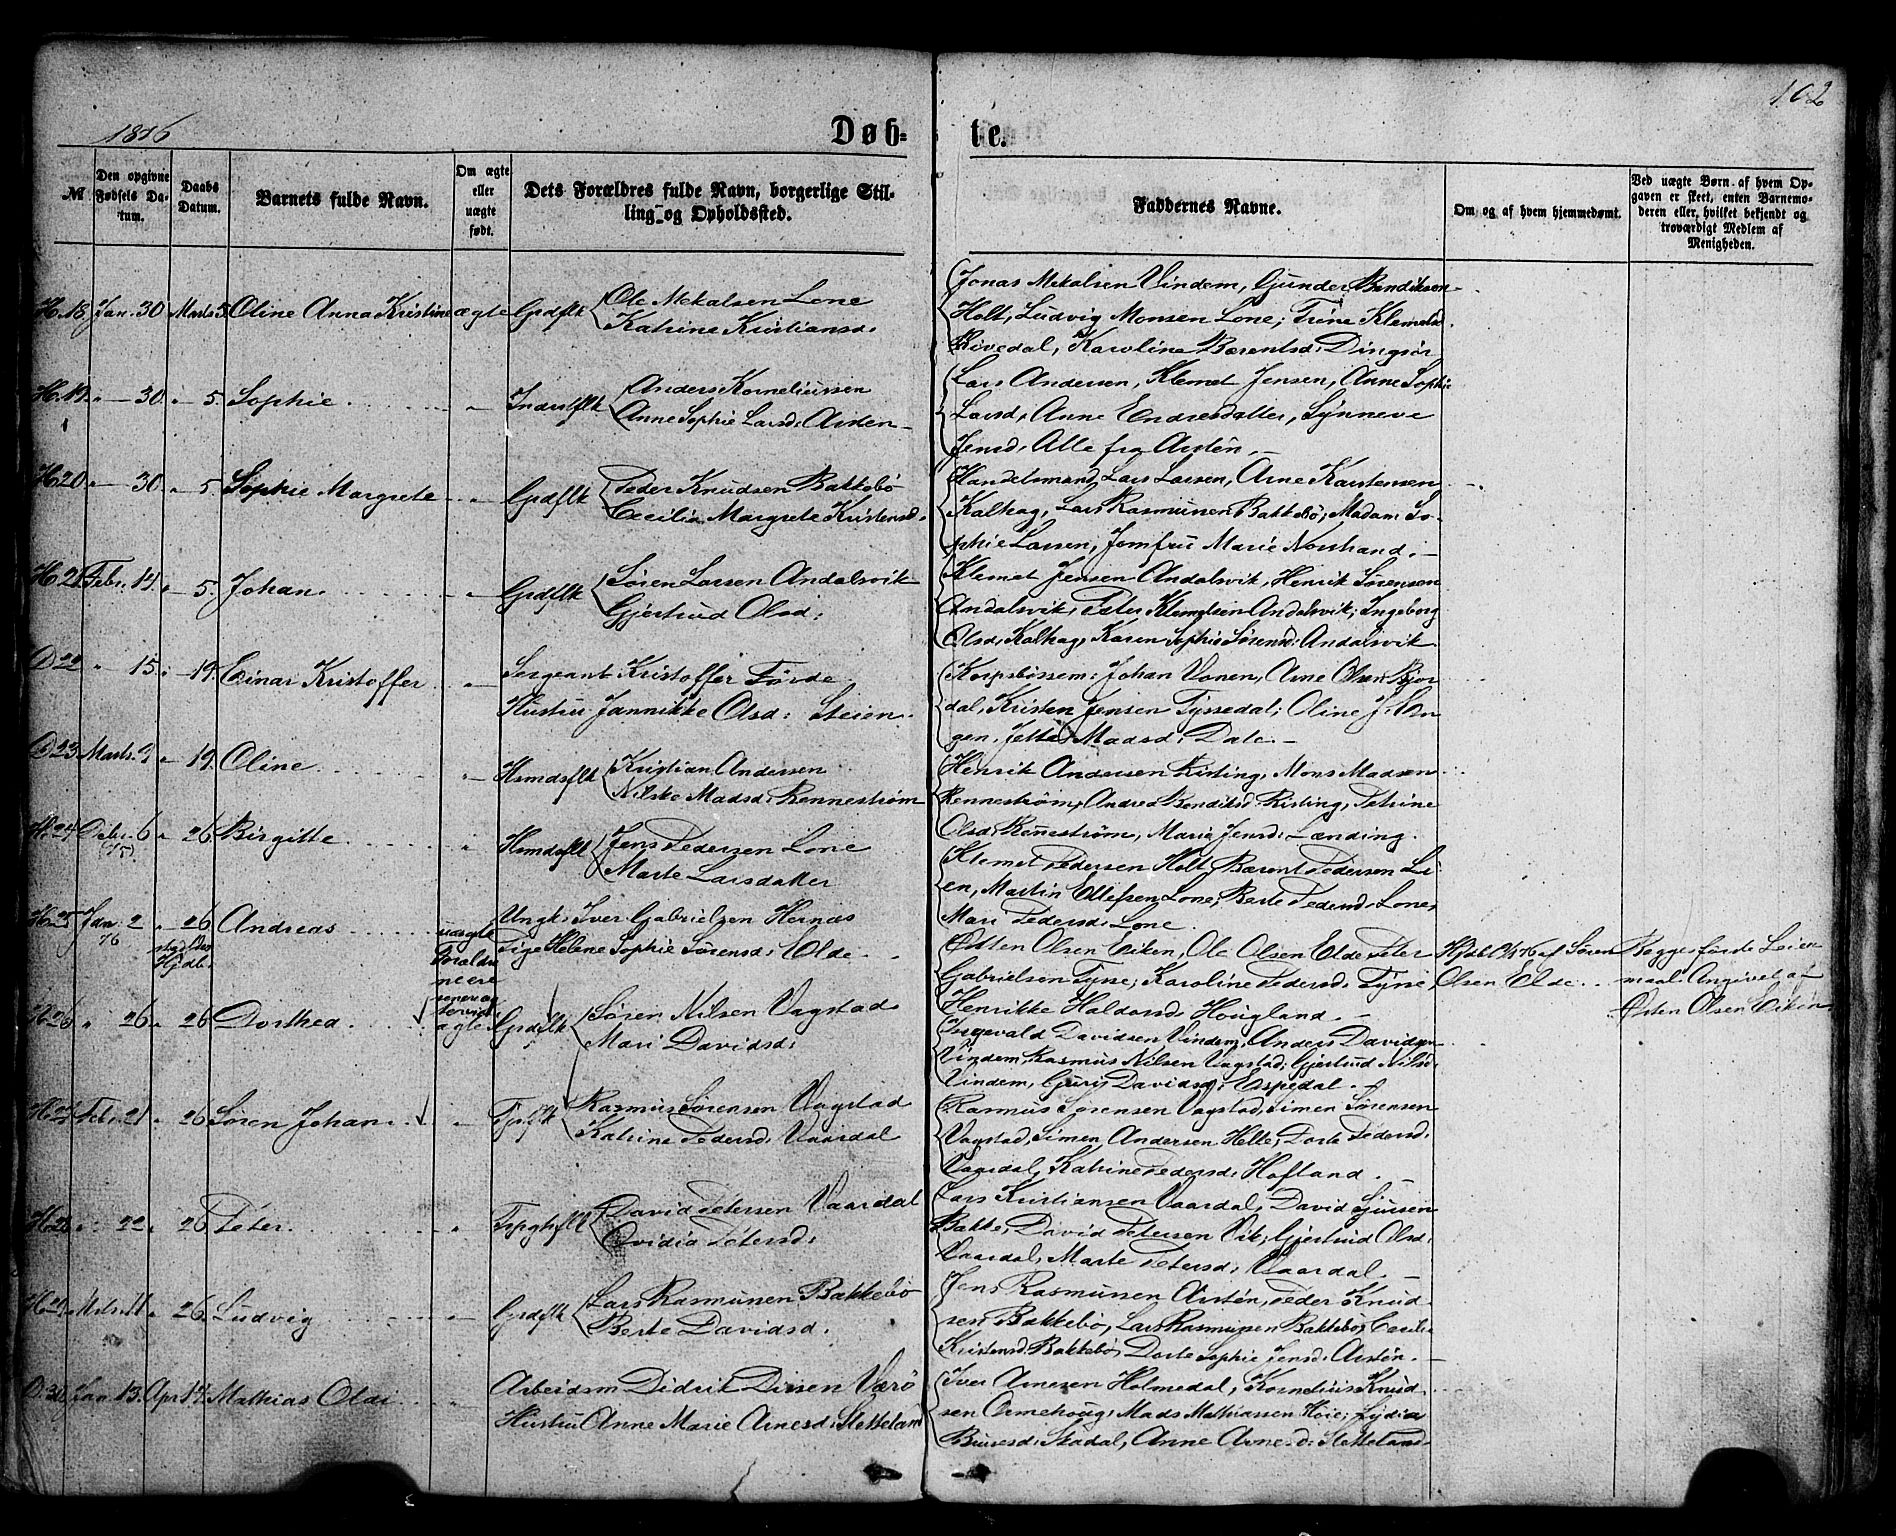 102
1876 Døb= te.
№ Den opgivne Fødsels Datum. Daabs Datum. Barnets fulde Navn. Om ægte eller uægte født. Dets Forældres fulde Navn, borgerlige Stilling og Opholdssted. Faddernes Navne. Om og af hvem hjemmedøbt. Ved uægte Børn, af hvem Opgaven er skeet, enten Barnemoderen eller, hvilket bekjendt og troværdigt Medlem af Menigheden.
Jonas Mekalsen Vindem, Gunder Bendiksen
H. 18. Jan. 30 Marts 5. Oline Anna Kristine ægte Grdflk Ole Mekalsen Lone
Katrine Kristiansd:
Holt, Ludvig Monsen Lone; Trine Klemetsd.
Rivedal, Karoline Bærentsd: Dingsør
H. 19. " 30 " 5. Sophie. " Inderstflk Anders Korneliussen
Anne Sophie Larsd: Arsten
Lars Andersen, Klemet Jensen, Anne Sophie
Larsd, Anne Endresdatter, Synneve
Jensd. Alle fra Arstén.
H 20 " 30 " 5 Sophie Margrete " Grdflk Peder Knudsen Bakkebø
Cecilia Margrete Kristensd:
Handelsmand Lars Larsen, Arne Karstensen
Kalhag, Lars Rasmusen Bakkebø; Madam So-
phie Larsen, Jomfru Marie Norstrand.
H. 21 Febr. 14 " 5. Johan. " Grdflk Søren Larsen Andalsvik
Gjertrud Olsd:
Klemet Jensen Andalsvik, Henrik Sørensen
Andalsvik, Peter Klemetsen Andalsvik; Ingeborg
Olsd: Kalhag, Karen Sophie Sørensd: Andalsvik.
D 22 " 15 " 19. Einar Kristoffer " Sergeant Kristoffer Førde
Hustru Jannikke Olsd: Steien.
Korpsbøssem: Johan Vonen, Arne Olsen Bjor-
dal, Kristen Jensen Tyssedal; Oline J. En-
gen, Jette Madsd: Dale.
D 23 Marts 9 " 19. Oline. " Hsmdsflk Kristian Andersen
Nilske Madsd: Rennestrøm
Henrik Andersen Risting, Mons Madsen
Rennestrøm, Andrea Bendiksd: Risting, Petrine
Olsd: Rennestrøm, Marie Jensd: Lænding.
H. 24 Debr 6 (75) " 26 Birgitte. " Hsmdsflk Jens Pedersen Lone
Marte Larsdatter
Klemet Pedersen Holt, Bærent Pedersen Li-
en, Martin Ellefsen Lone, Berte Pedersd: Lone,
Mari Pedersd: Lone.
H. 25 Jan. 2 76 " 26 Andreas uægte Ungk: Iver Gabrielsen Hernæs
Pige Helene Sophie Sørensd: Elde.
Østen Olsen Eiken, Ole Olsen Elde, Peter
Gabrielsen Tysse; Karoline Pedersd: Tysse
Henrikke Haldorsd: Hougland.
Hjdbt af Søren
Olsen Elde.
Begges første Leier-
maal. Angivet af
Østen Olsen Eiken
Forældre
H 26 " 26 " 26 Dorthea. ægte Grdflk Søren Nilsen Vagstad
Mari Davidsd:
Ingevald Davidsen Vindem, Anders Davidsen
Vindem, Rasmus Nilsen Vagstad; Gjertrud Nilsd:
Vindem, Guri Davidsd: Espedal.
H. 27 Febr. 21 " 26 Søren Johan. " Rasmus Sørensen Vagstad
Katrine Pedersd: Vaardal
Rasmus Sørensen Vagstad, Simen Sørensen
Vagstad, Simen Andersen Helle; Dorte Pedersd:
Vaardal, Katrine Pedersd: Hofland.
H. 28 " 22 " 26 Peter. " David Petersen Vaardal
Ovidia Petersd:
Lars Kristiansen Vaardal, David Sjursen
Bakke, David Petersen Vik; Gjertrud Olsd:
Vaardal, Marte Petersd: Vaardal.
H. 29 Mrts. 11 " 26. Ludvig " Grdflk Lars Rasmusen Bakkebø
Berte Davidsd.
Jens Rasmusen Arstén, Peder Knud-
sen Bakkebø, Lars Rasmusen Bakkebø; Cecilie
Kristensd: Bakkebø, Dorte Sophie Jensd: Arstén.
D. 30. Jan. 13. Apr. 17. Mathias Olai " Arbeidsm Didrik Disen Værø
Hustru Anne Marie Arnesd: Stetteland
Iver Arnesen Holmedal, Kornelius Knud-
sen Ormehoug; Mads Mathiassen Høie; Lydia
Stadal, Anne Arnesd: Stetteland